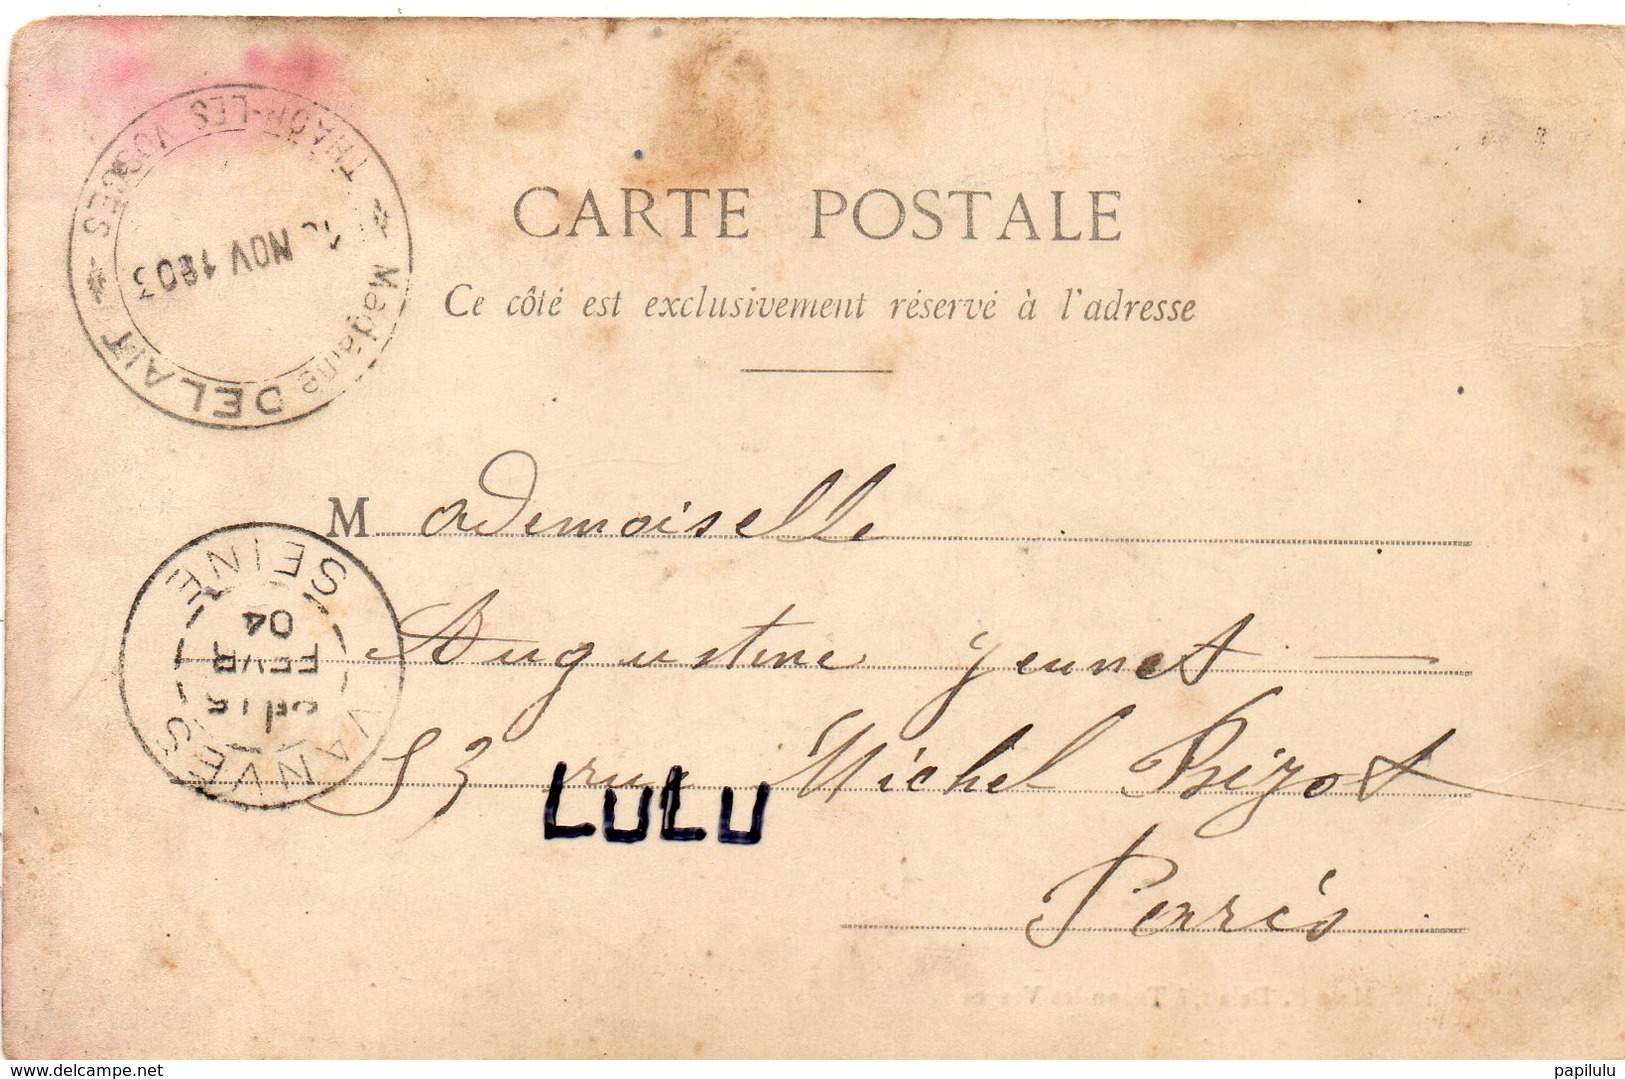 THAON-LES VOSGES
NOV 1903
Madame DELAIT
CARTE POSTALE
Ce côté est exclusivement réservé à l'adresse
Mademoiselle
Augustine Jeunet
53 rue Michel Bizot
Paris
SEINE
04
FEVR
VANVES
LULU
www.delcampe.net
papilulu